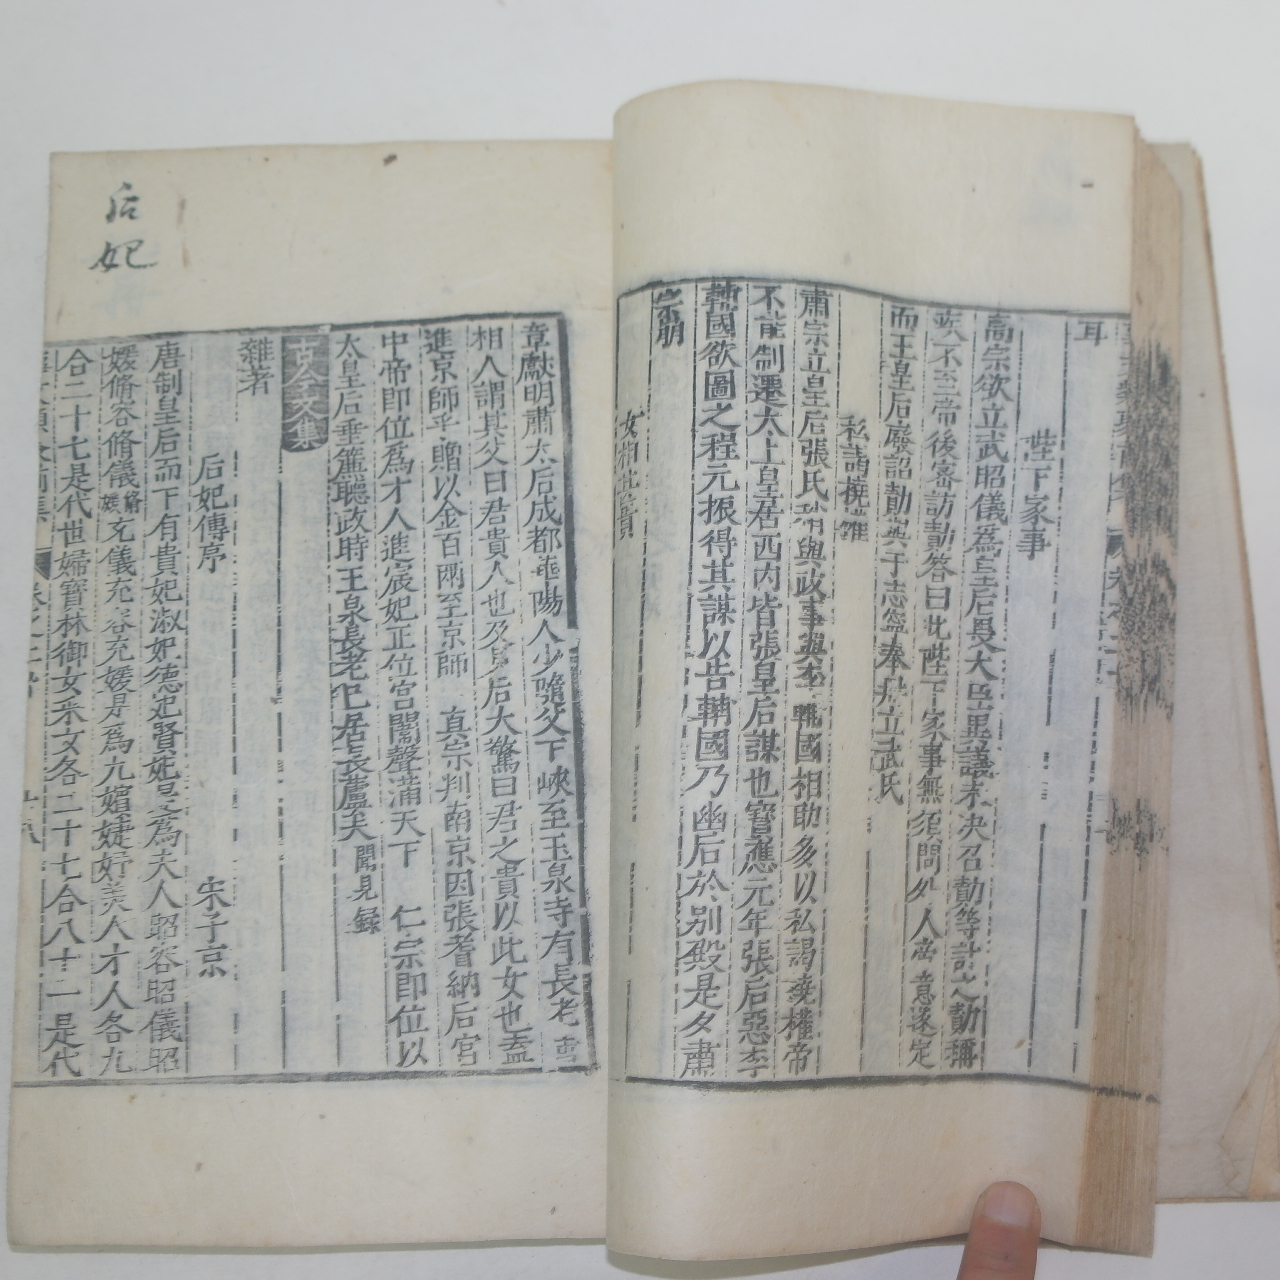 耳
陛下家事
高宗欲立武昭儀為皇后畏大臣異議未決召勣等計之勣稱
疾不至帝後密訪勣答曰此陛下家事無須問外人帝意遂定
而王皇后廢詔勣與于志寧奉冊立武氏
私謁撓權
肅宗立皇后張氏稍與政事與李輔國相助多以私謁撓權帝
不能制遷太上皇居西內皆張皇后謀也寶應元年張后惡李
輔國欲圖之程元振得其謀以告輔國乃幽后於別殿是夕肅
宗崩
女相至貴
后妃
章獻明肅太后成都龍陽人少隨父下峽至玉泉寺有長老善
相人謂其父曰君貴人也及見后大驚曰君之貴以此女也盍
進京師乎贈以金百兩至京師真宗判南京因張耆納后宮
中帝即位為才人進宸妃正位宮闈聲滿天下仁宗即位以
太皇后垂簾聽政時玉泉長老已居長蘆矣聞見錄
古今文集
雜著
后妃傳序 宋子京
唐制皇后而下有貴妃淑妃德妃賢妃是為夫人昭容昭儀昭
媛脩容脩儀脩媛充儀充容充媛是為九嬪婕妤美人才人各九
合二十七是代世婦寶林御女采女各二十七合八十一是代